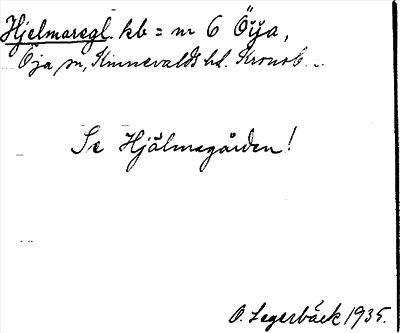 Hjelmaregl. kb = nr 6 Öija,
Öja sn, Kinnevalds hd. Kronob.
Se Hjälmagården!
O. Legerbäck 1935.